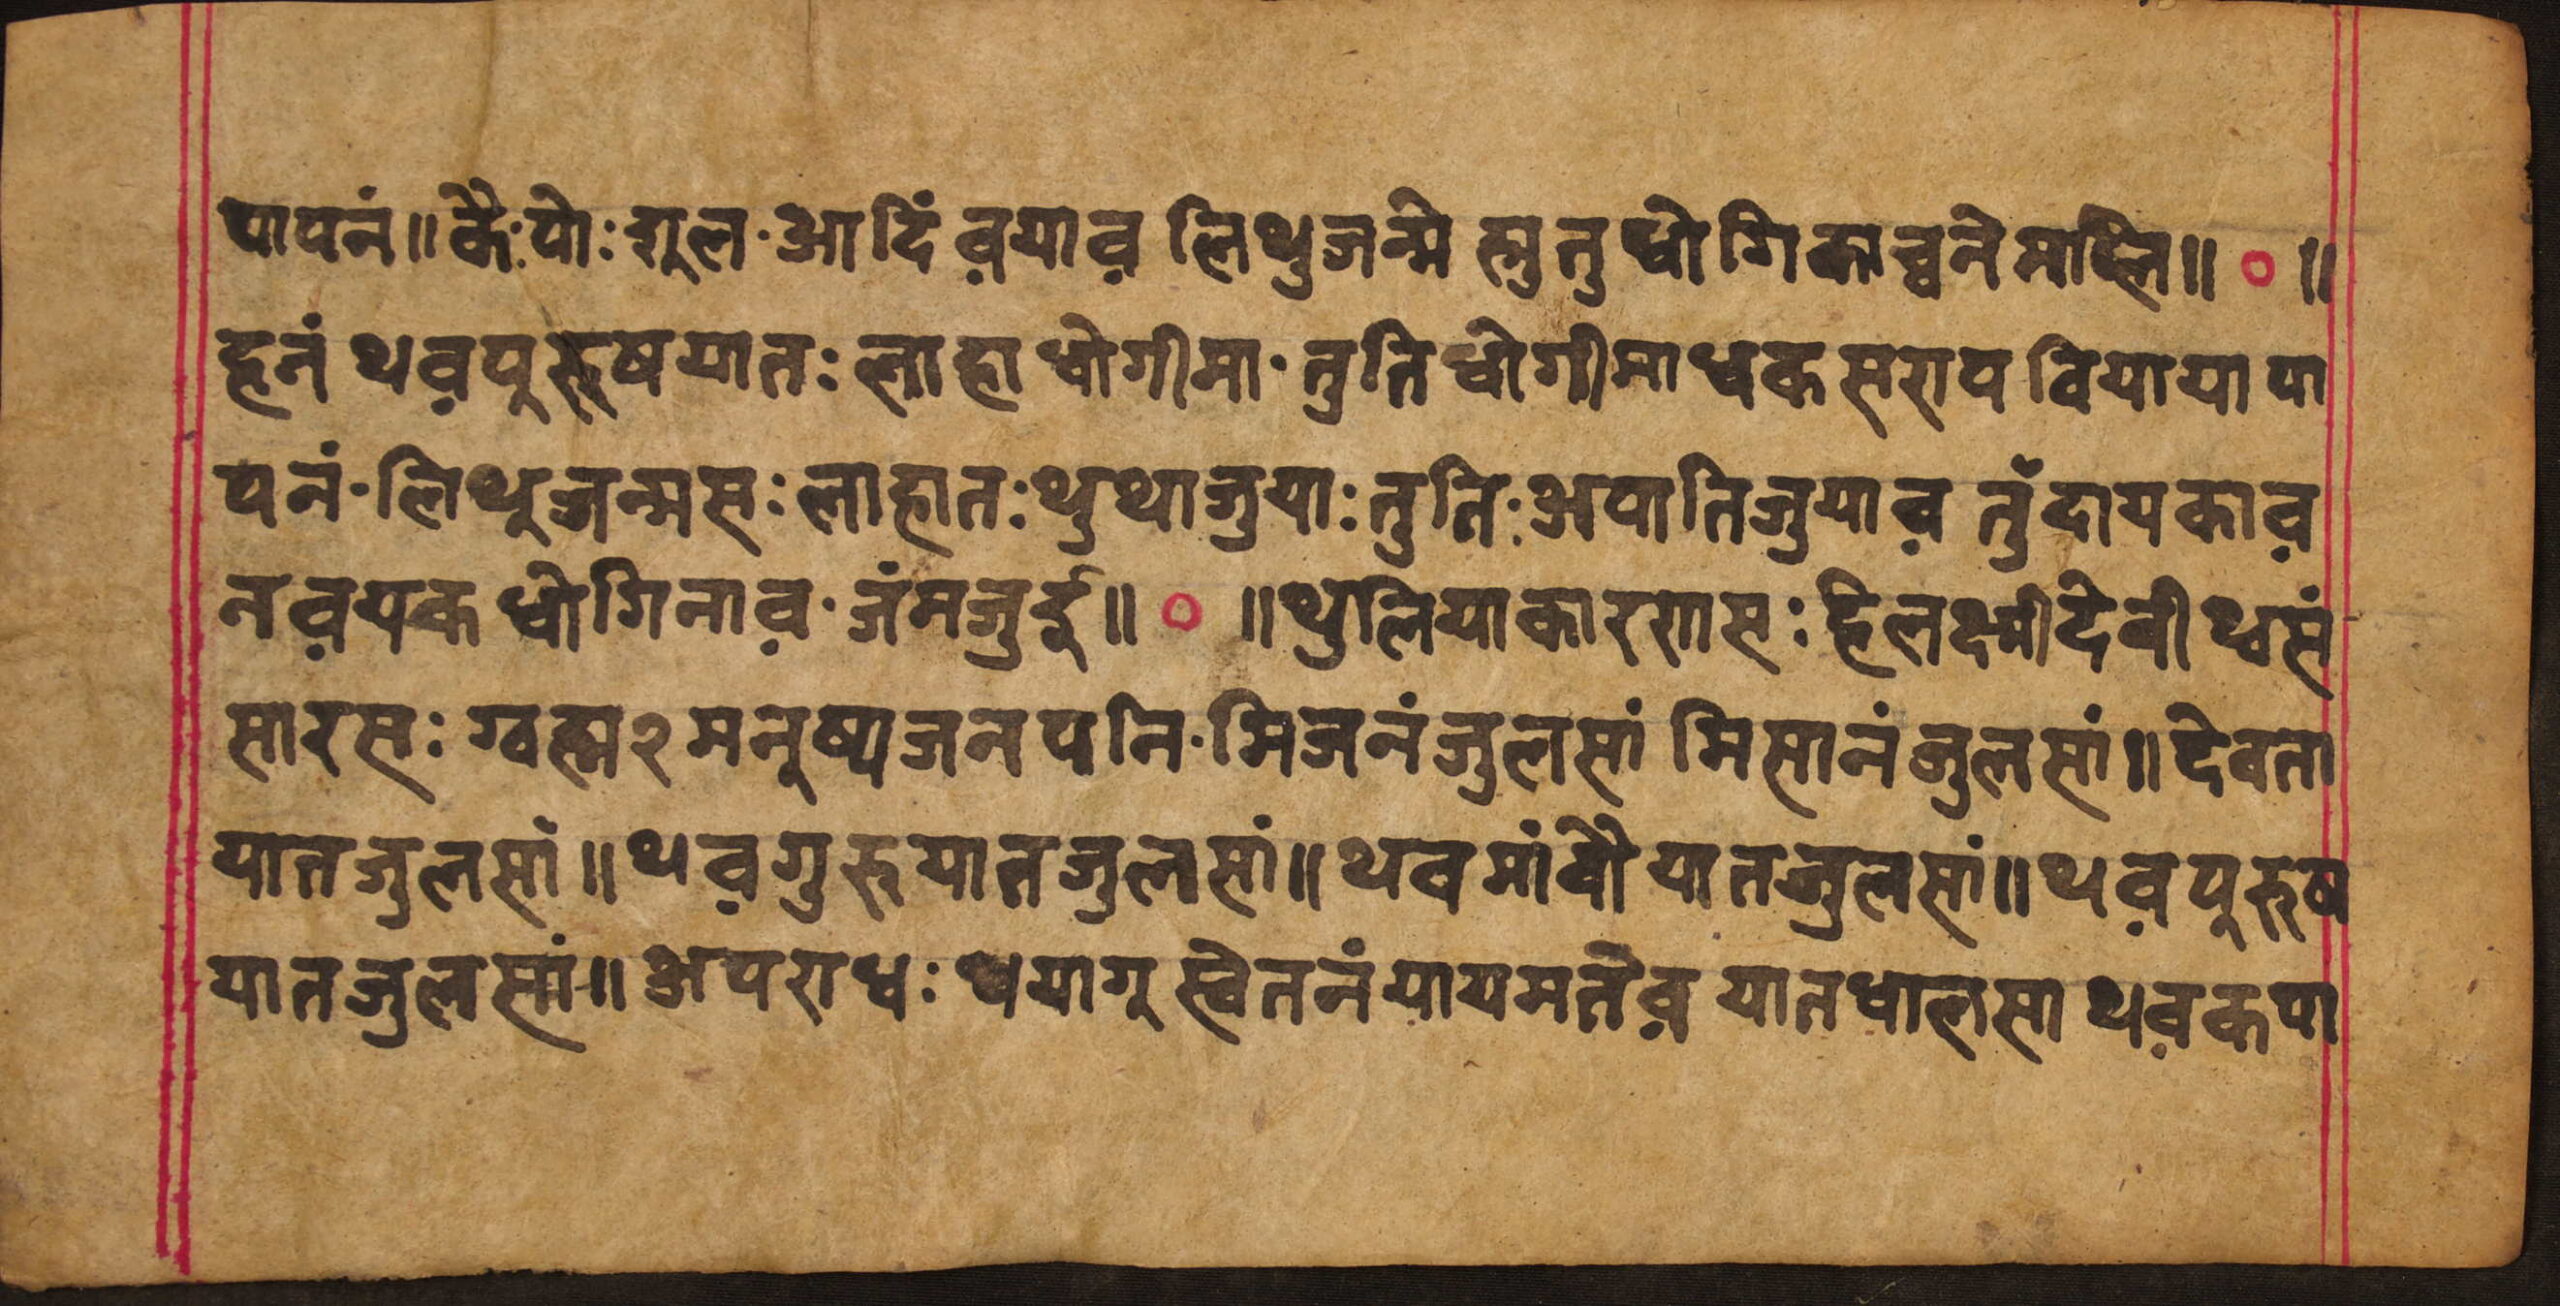 पापनं॥ कै·पोः शूल·आदिं वयाव लिथुजन्मे स्तुतु ध्वोगि काच्वने मालि॥ ० ॥
हनं थवपुरुषयातः लाहा ध्वोगीमा·तुति ध्वोगीमा धक सराप वियाया पा
पनं·लिथुजन्मसः लाहातः थुथाजुयाः तुति·अपातिजुयाव तुँदायकाव
नवयक ध्वोगिनाव·जंमजुई॥ ० ॥ थुलियाकारणसः हिलक्ष्मीदेवी थ्वसं
सारसः ग्वह्म२ मनुष्यजनपनि·मिजनंजुलसां मिसानंजुलसां॥ देवता
यातजुलसां॥ थवगुरुयातजुलसां॥ थवमांवौयातजुलसां॥ थवपुरुष
यातजुलसां॥ अपराधः थ्वयागू स्वेतनंयायमतेव यातधालसा थवकपा